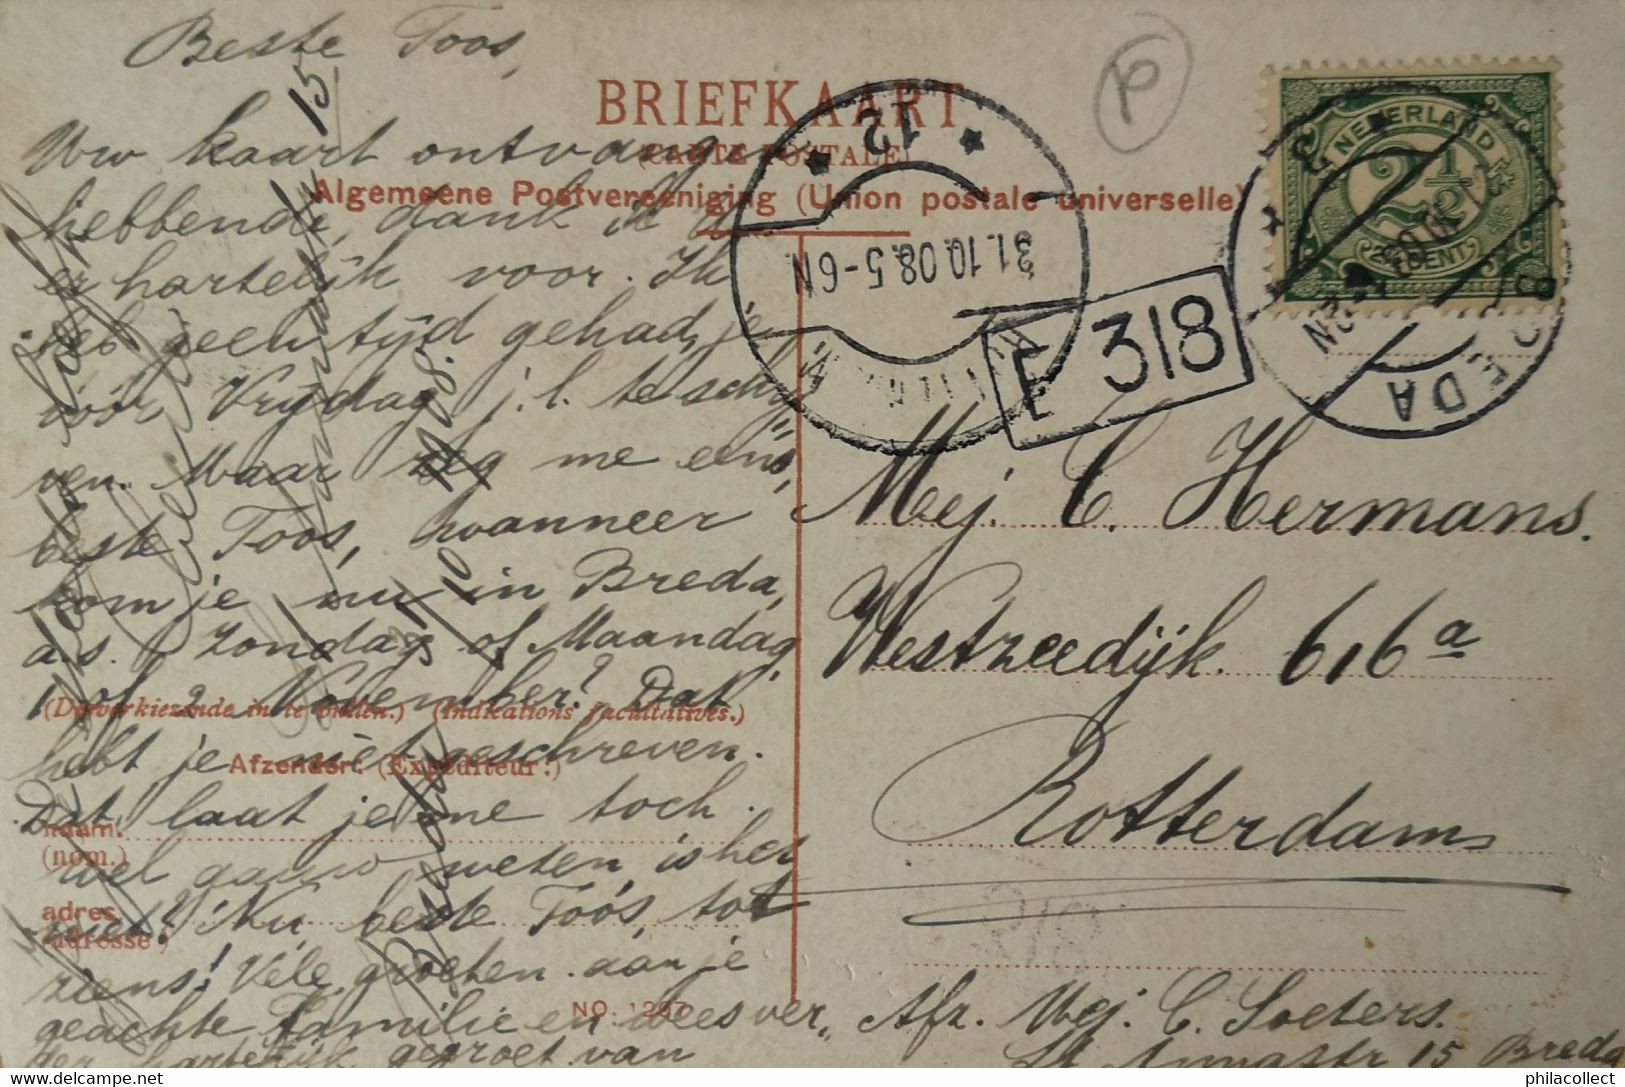 Beste Toos,
Uw kaart ontvang
hebbende, dank ik U
er hartelijk voor. Ik
heb geen tijd gehad, je
vóór Vrijdag j.l. te schrij
ven. Maar zeg me eens,
beste Toos, wanneer
kom je nu in Breda,
a.s. Zondag of Maandag
1 of 2 November? Dat
hebt je niet geschreven.
Dat laat je me toch
wel gauw weten, is het
niet? Nu beste Toos, tot
ziens! Vele groeten aan je
geachte Familie en wees ver„
der hartelijk gegroet van
BRIEFKAART
(CARTE POSTALE)
Algemeene Postvereeniging (Union postale universelle)
(Desverkiezende in te vullen.) (Indications facultatives.)
Afzender: (Expéditeur:)
naam.
(nom.)
adres.
(adresse)
NO. 1287
12
31.10.08.5-6N
E 318
NEDERLAND
2½
CENT
BREDA
Mej. C. Hermans.
Westzeedijk 616a
Rotterdam
Afz. Mej. C. Soeters.
St Annastr 15 Breda
philacollect
delcampe.net